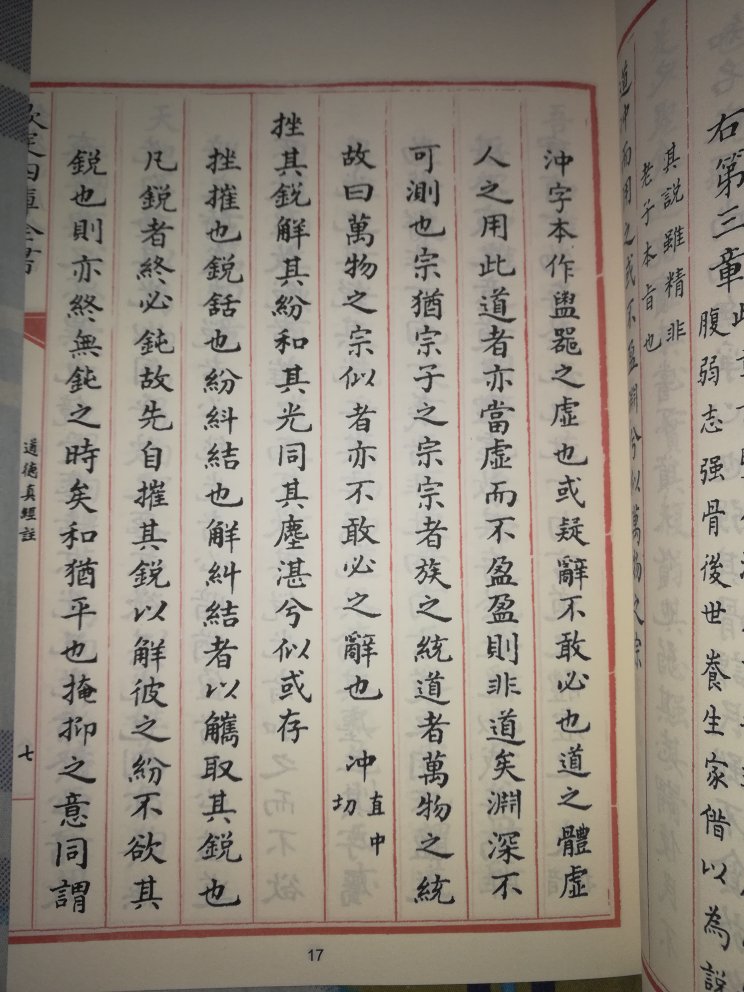 右第三章此
腹弱志强骨後世養生家借以為說
其說雖精非
老子本旨也
道沖而用之或不盈淵兮似萬物之宗
沖字本作盅器之虚也或疑辭不敢必也道之體虚
人之用此道者亦當虚而不盈盈則非道矣淵深不
可測也宗猶宗子之宗宗者族之統道者萬物之統
故曰萬物之宗似者亦不敢必之辭也 沖直中切
挫其鋭解其紛和其光同其塵湛兮似或存
挫摧也鋭銛也紛糾結也解糾結者以觿取其鋭也
凡鋭者終必鈍故先自摧其鋭以解彼之紛不欲其
鋭也則亦終無鈍之時矣和猶平也掩抑之意同謂
欽定四庫全書
道德真經註
七
17